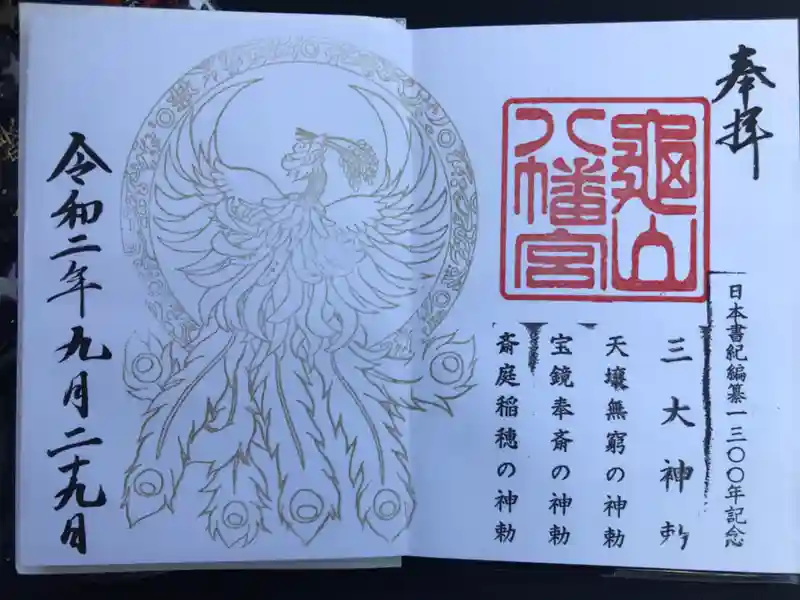 奉拝
龜山
八幡宮
日本書紀編纂一三〇〇年記念
三大神勅
天壌無窮の神勅
宝鏡奉斎の神勅
斎庭稲穂の神勅
令和二年九月二十九日